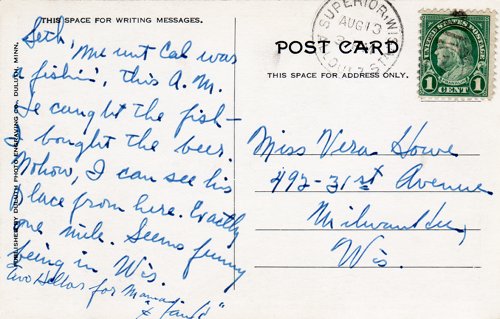 THIS SPACE FOR WRITING MESSAGES.
Seth,
"Me unt Cal was
a fishin', this A.M.
He caught the fish-
I bought the beer.
Nohow, I can see his
place from here. Exactly
one mile. Seems funny
being in Wis.
Two Hellos for Mama
&
PUBLISHED BY DULUTH PHOTO ENGRAVING CO., DULUTH, MINN.
SUPERIOR, WIS.
AUG 13
POST CARD
THIS SPACE FOR ADDRESS ONLY.
UNITED STATES POSTAGE
1 CENT 1
Miss Vera Howe
492-31st Avenue
Milwaukee,
Wis.